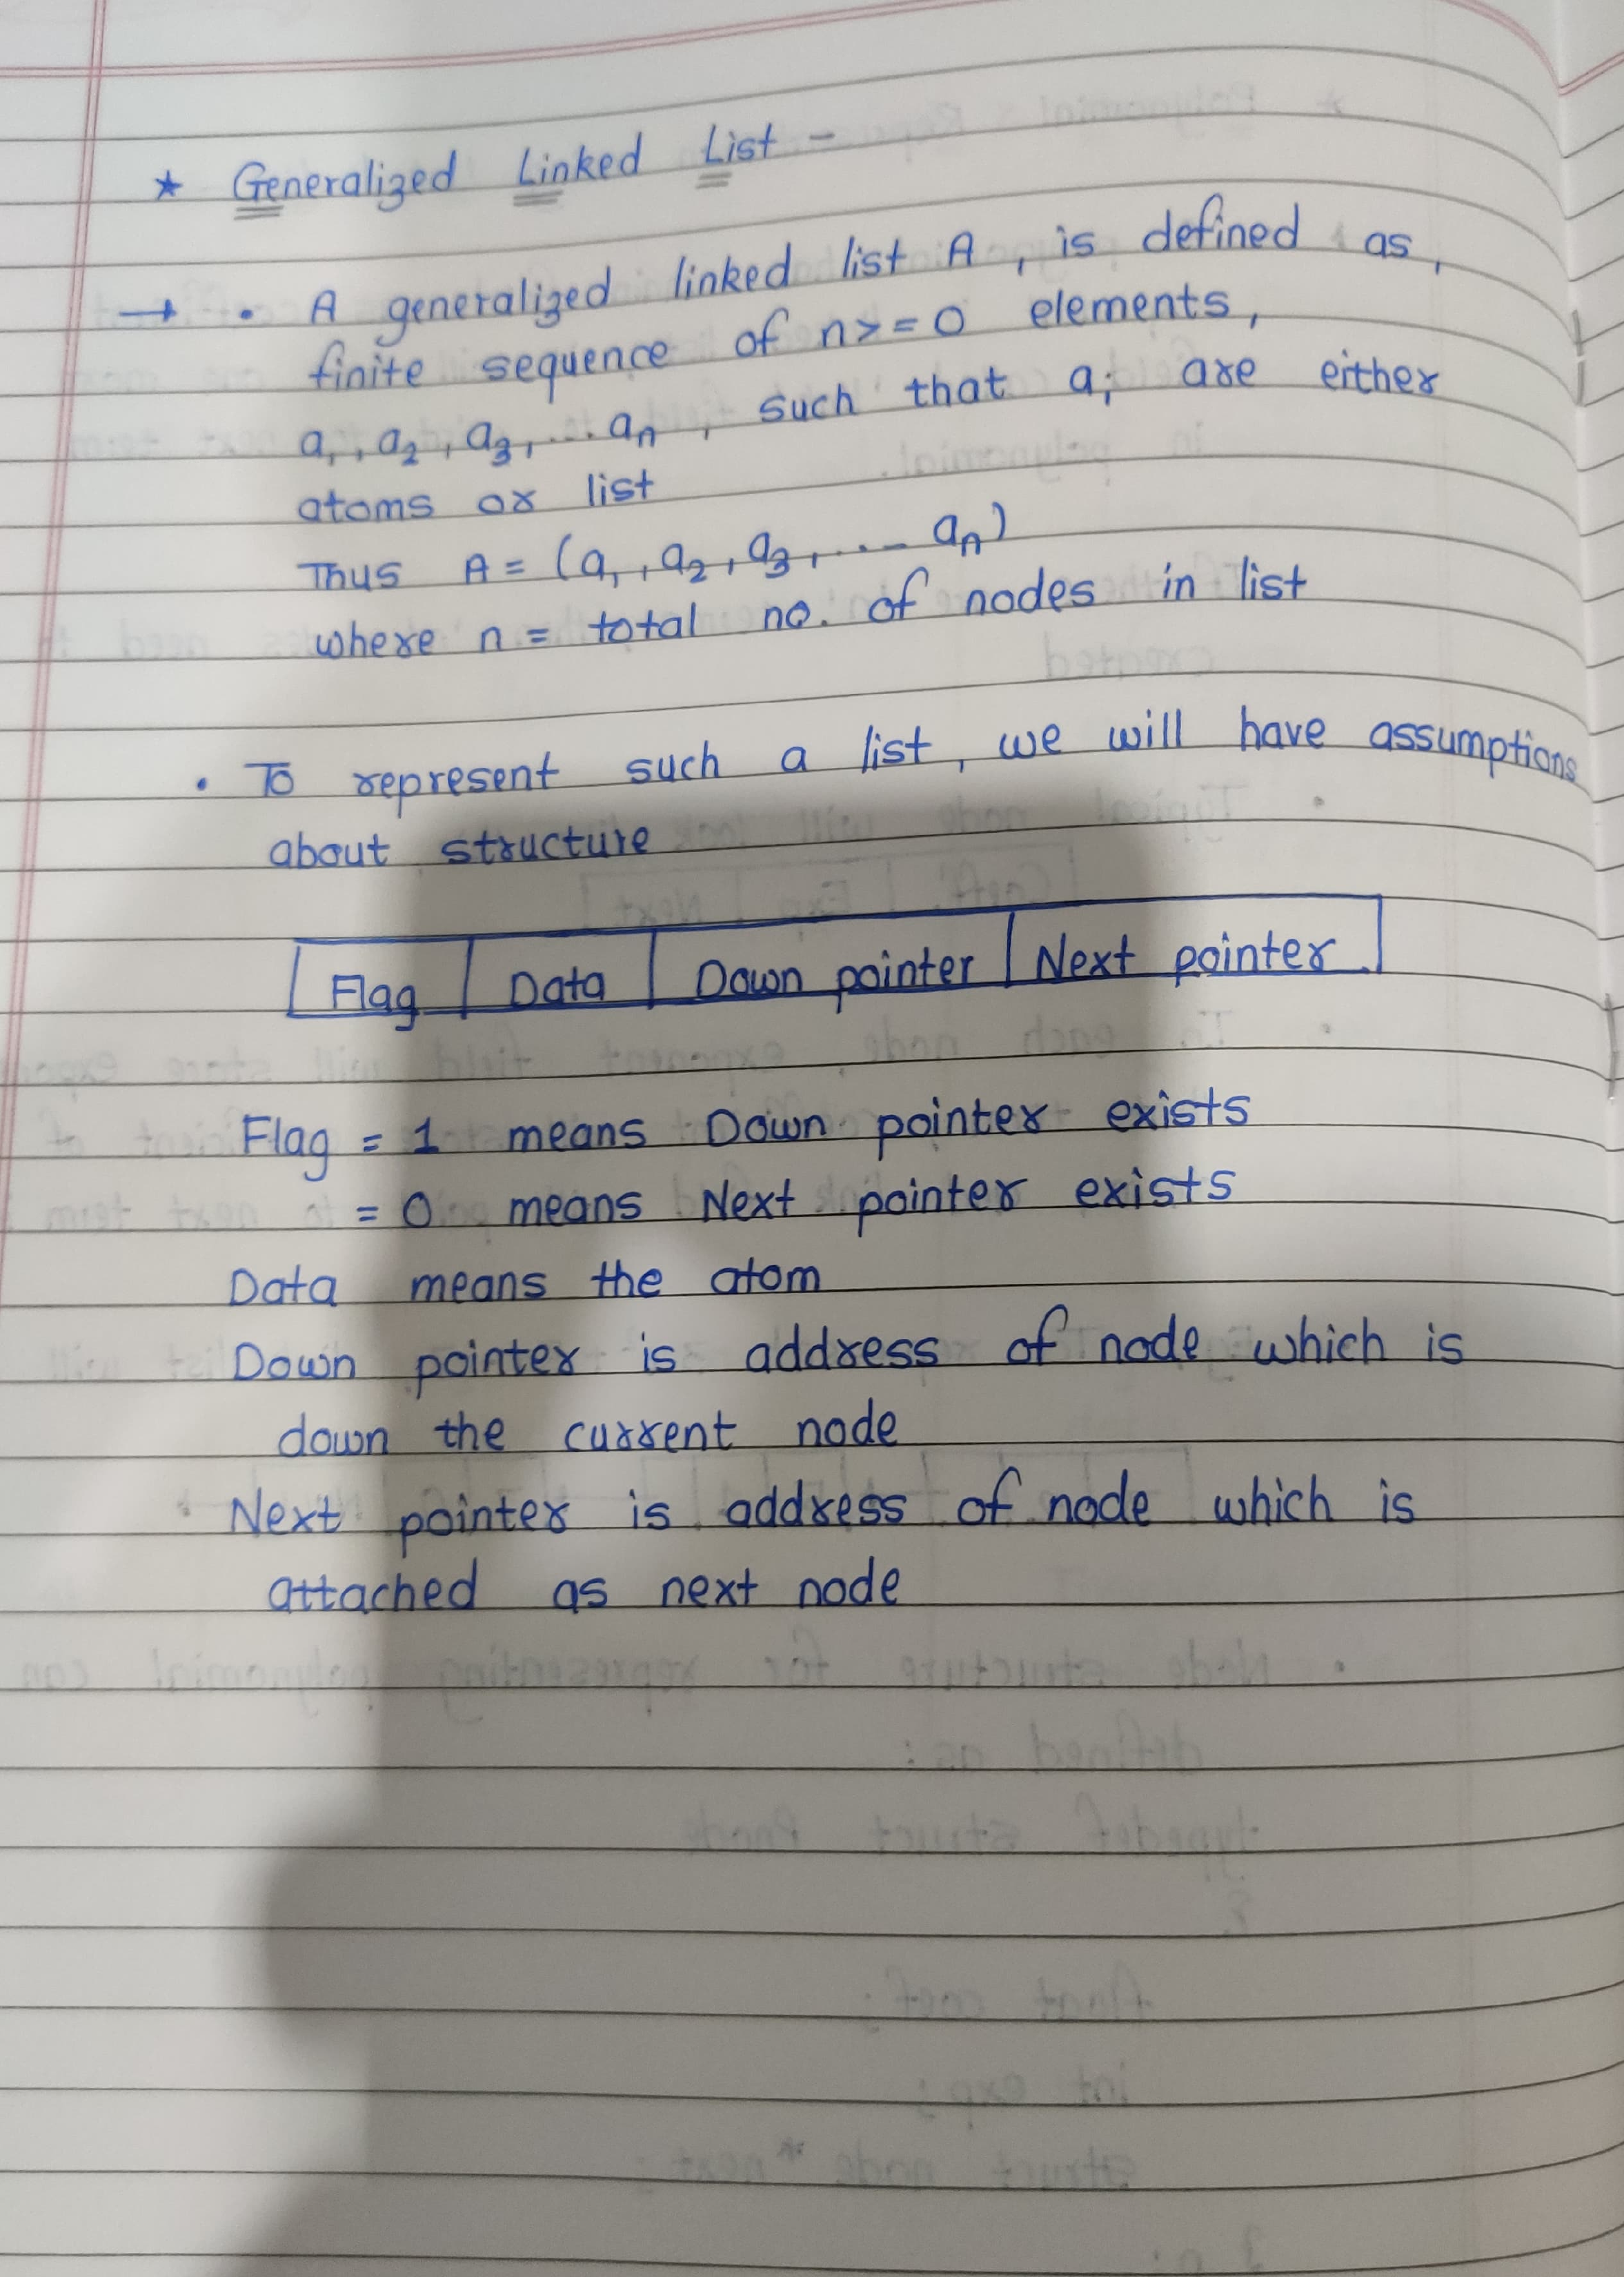 ★ Generalized Linked List -
→ • A generalized linked list A, is defined as,
finite sequence of n>=0 elements,
a₁, a₂, a₃, ... aₙ, such that aᵢ are either
atoms or list
Thus A = (a₁, a₂, a₃, ... aₙ)
where n = total no. of nodes in list
• To represent such a list, we will have assumptions
about structure
Flag | Data | Down pointer | Next pointer
Flag = 1 means Down pointer exists
= 0 means Next pointer exists
Data means the atom
Down pointer is address of node which is
down the current node
Next pointer is address of node which is
attached as next node